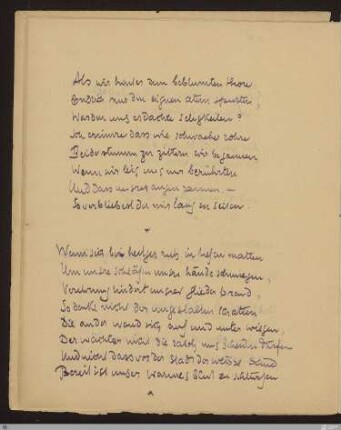 Als wir hinter dem beblümten thore
Endlich nur das eigne atmen spürten
Warden uns erdachte seligkeiten?
Ich erinnere dass wie schwache rohre
Beide stumm zu zittern wir begannen
Wenn wir leis nur uns berührten
Und dass unsre augen rannen –
So verbliebest du mir lang zu seiten.

Wenn sich bei heilger ruh in tiefen matten
Um unsre schläfen unsre hände schmiegen,
Verehrung lindert unsrer glieder brand,
So denke nicht der ungestalten schatten
Die an der wand sich auf und unter wiegen,
Der wächter nicht die rasch uns scheiden dürfen
Und nicht dass vor der stadt der weisse sand
Bereit ist unser warmes blut zu schlürfen